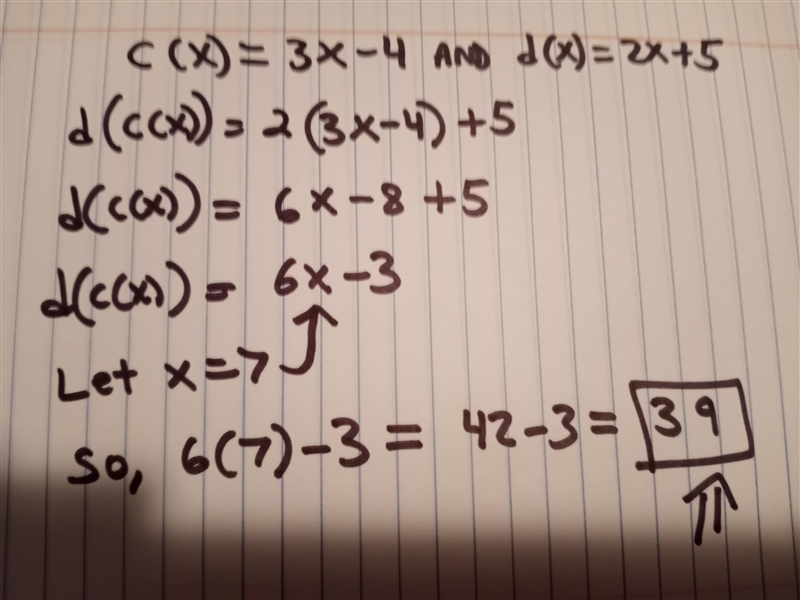 c(x) = 3x-4 AND d(x) = 2x+5
d(c(x)) = 2(3x-4)+5
d(c(x)) = 6x-8+5
d(c(x)) = 6x-3
Let x=7
so, 6(7)-3 = 42-3 = 39